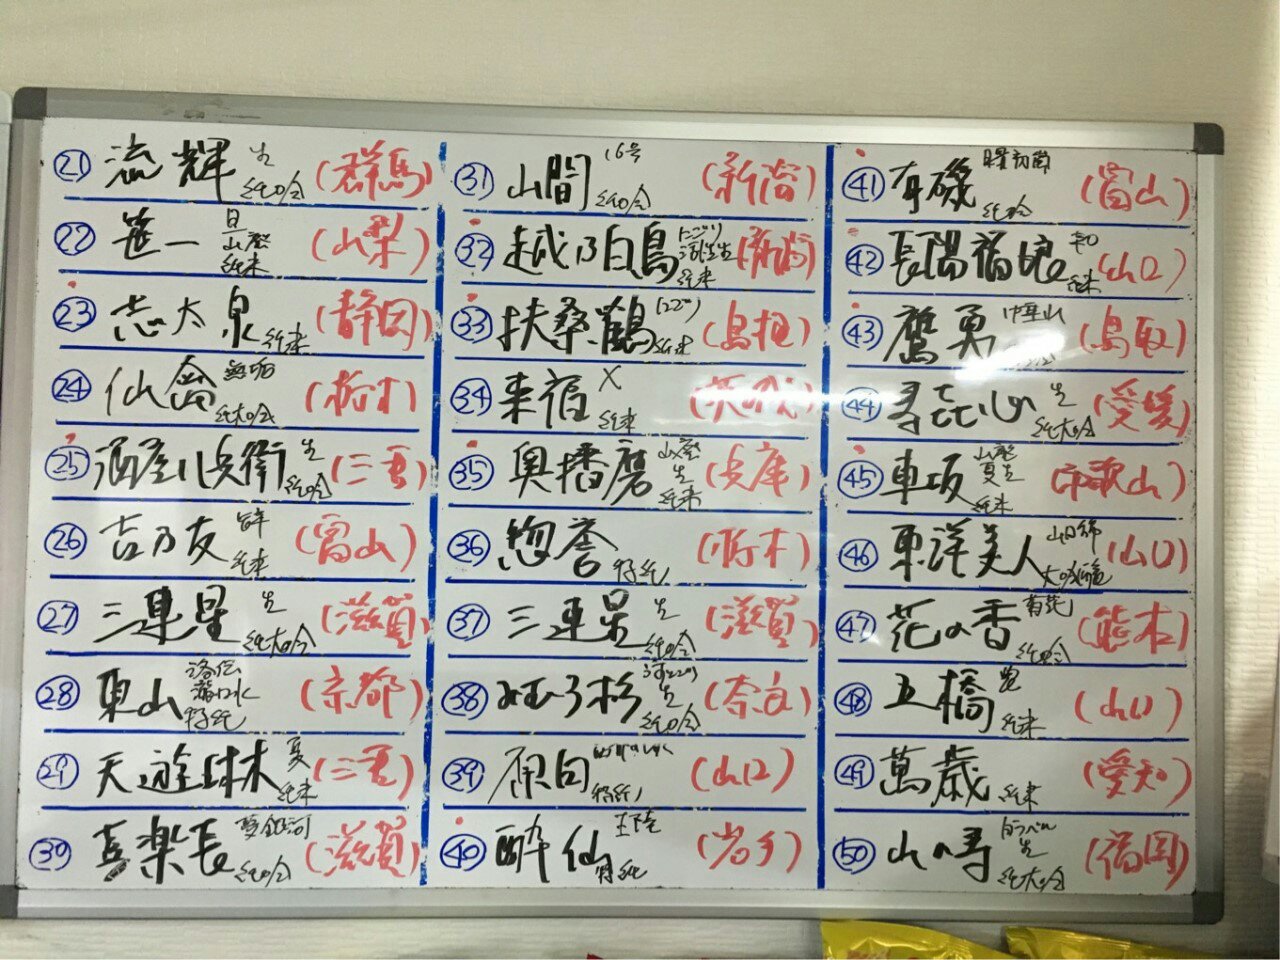 ㉑ 流輝 生 純吟 (群馬)
㉒ 笹一 旦 山廃 純米 (山梨)
㉓ 志太泉 純米 (静岡)
㉔ 仙禽 無垢 純大吟 (栃木)
㉕ 酒屋八兵衛 生 純吟 (三重)
㉖ 吉乃友 純米 (富山)
㉗ 三連星 生 純大吟 (滋賀)
㉘ 東山 特純 (京都)
㉙ 天遊琳 夏 純米 (三重)
㉚ 喜楽長 夢銀河 純吟 (滋賀)
㉛ 山間 16号 純吟 (新潟)
㉜ 越乃白鳥 にごり 純米 (新潟)
㉝ 扶桑鶴 (にごり) 純米 (島根)
㉞ 来福 X 純米 (茨城)
㉟ 奥播磨 山廃 生 純米 (兵庫)
㊱ 惣誉 特純 (栃木)
㊲ 三連星 生 純吟 (滋賀)
㊳ みむろ杉 生 純吟 (奈良)
㊴ 原田 特純 (山口)
㊵ 酔仙 特純 (岩手)
㊶ 有磯 曙 初嵐 純吟 (富山)
㊷ 長陽福娘 辛口 純米 (山口)
㊸ 鷹勇 (鳥取)
㊹ 寿喜心 生 純大吟 (愛媛)
㊺ 車坂 山廃 夏生 純米 (和歌山)
㊻ 東洋美人 大吟醸 (山口)
㊼ 花の香 菊花 純吟 (熊本)
㊽ 五橋 純米 (山口)
㊾ 萬歳 純米 (愛知)
㊿ 山の寿 白ラベル 生 純大吟 (福岡)